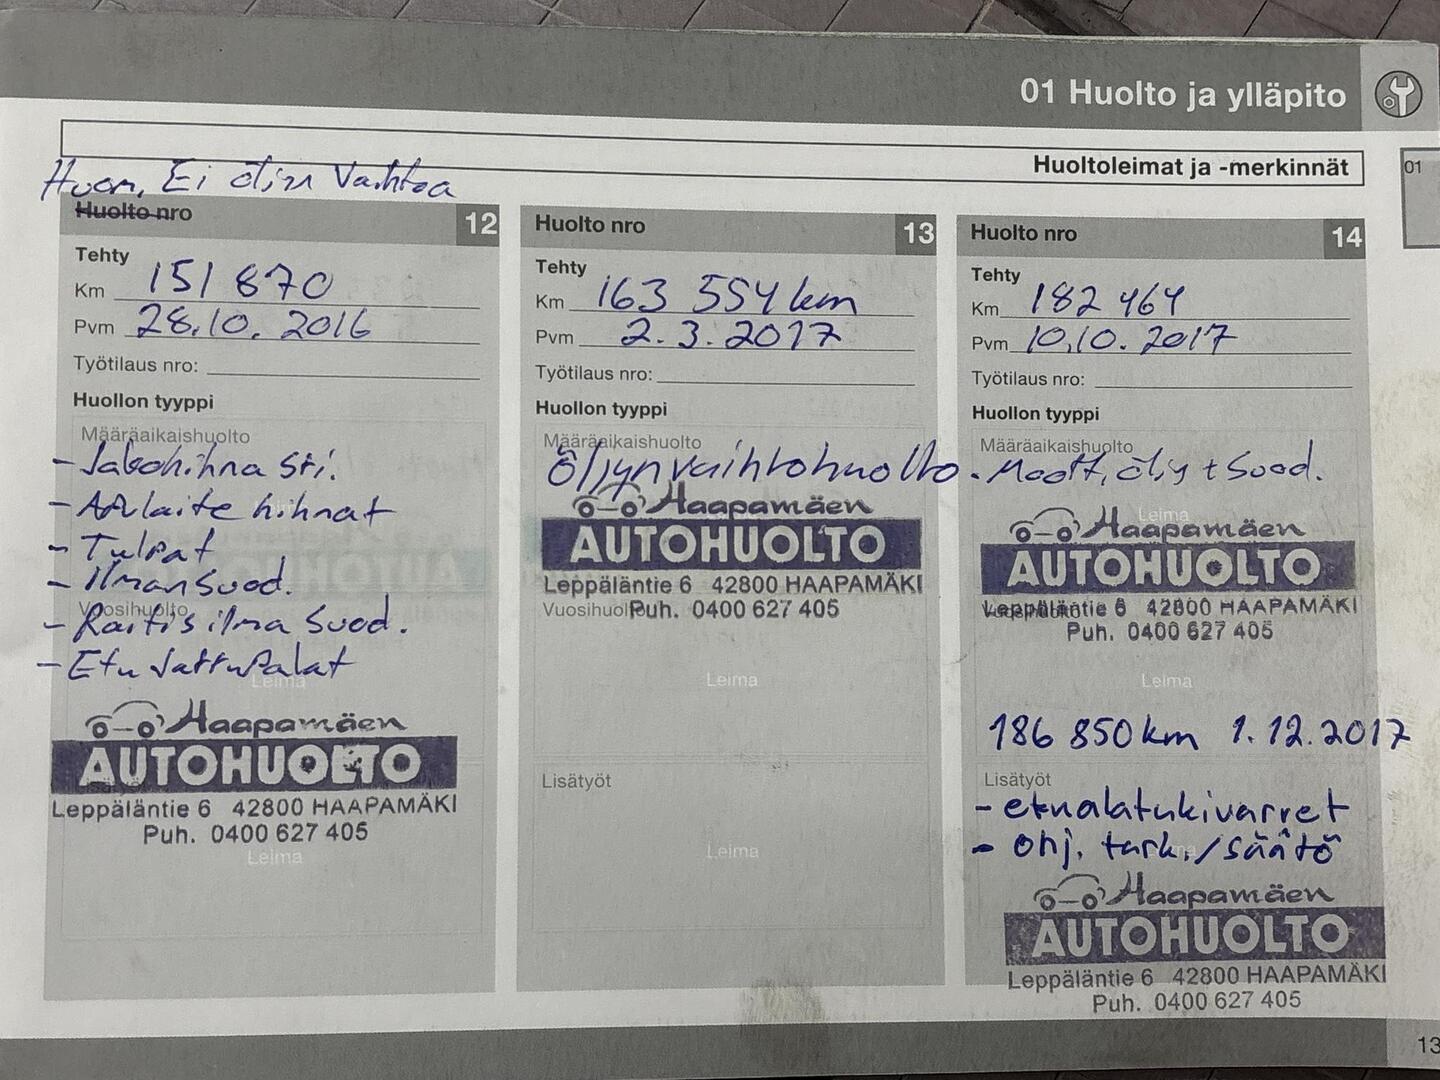 01 Huolto ja ylläpito
Huoltoleimat ja -merkinnät
01
Huom, Ei öljyn Vaihtoa
Huolto nro 12
Tehty
Km 151 870
Pvm 28.10. 2016
Työtilaus nro:
Huollon tyyppi
Määräaikaishuolto
- Jakohihna sri.
- Apulaite hihnat
- Tulpat
- Ilmansuod.
Vuosihuolto
- Raitis ilma Suod.
- Etu Jarrupalat
Leima
Haapamäen
AUTOHUOLTO
Leppäläntie 6 42800 HAAPAMÄKI
Puh. 0400 627 405
Leima
Huolto nro 13
Tehty
Km 163 554 km
Pvm 2.3.2017
Työtilaus nro:
Huollon tyyppi
Määräaikaishuolto
Öljynvaihtohuolto
Haapamäen
AUTOHUOLTO
Leppäläntie 6 42800 HAAPAMÄKI
Vuosihuolto
Puh. 0400 627 405
Leima
Lisätyöt
Leima
Huolto nro 14
Tehty
Km 182 464
Pvm 10.10. 2017
Työtilaus nro:
Huollon tyyppi
Määräaikaishuolto
- Moott, öljy + Suod.
Leima
Haapamäen
AUTOHUOLTO
Leppäläntie 6 42800 HAAPAMÄKI
Puh. 0400 627 405
Leima
186 850 km 1.12.2017
Lisätyöt
- etualatukivarret
- ohj. tark./säätö
Haapamäen
AUTOHUOLTO
Leppäläntie 6 42800 HAAPAMÄKI
Puh. 0400 627 405
13